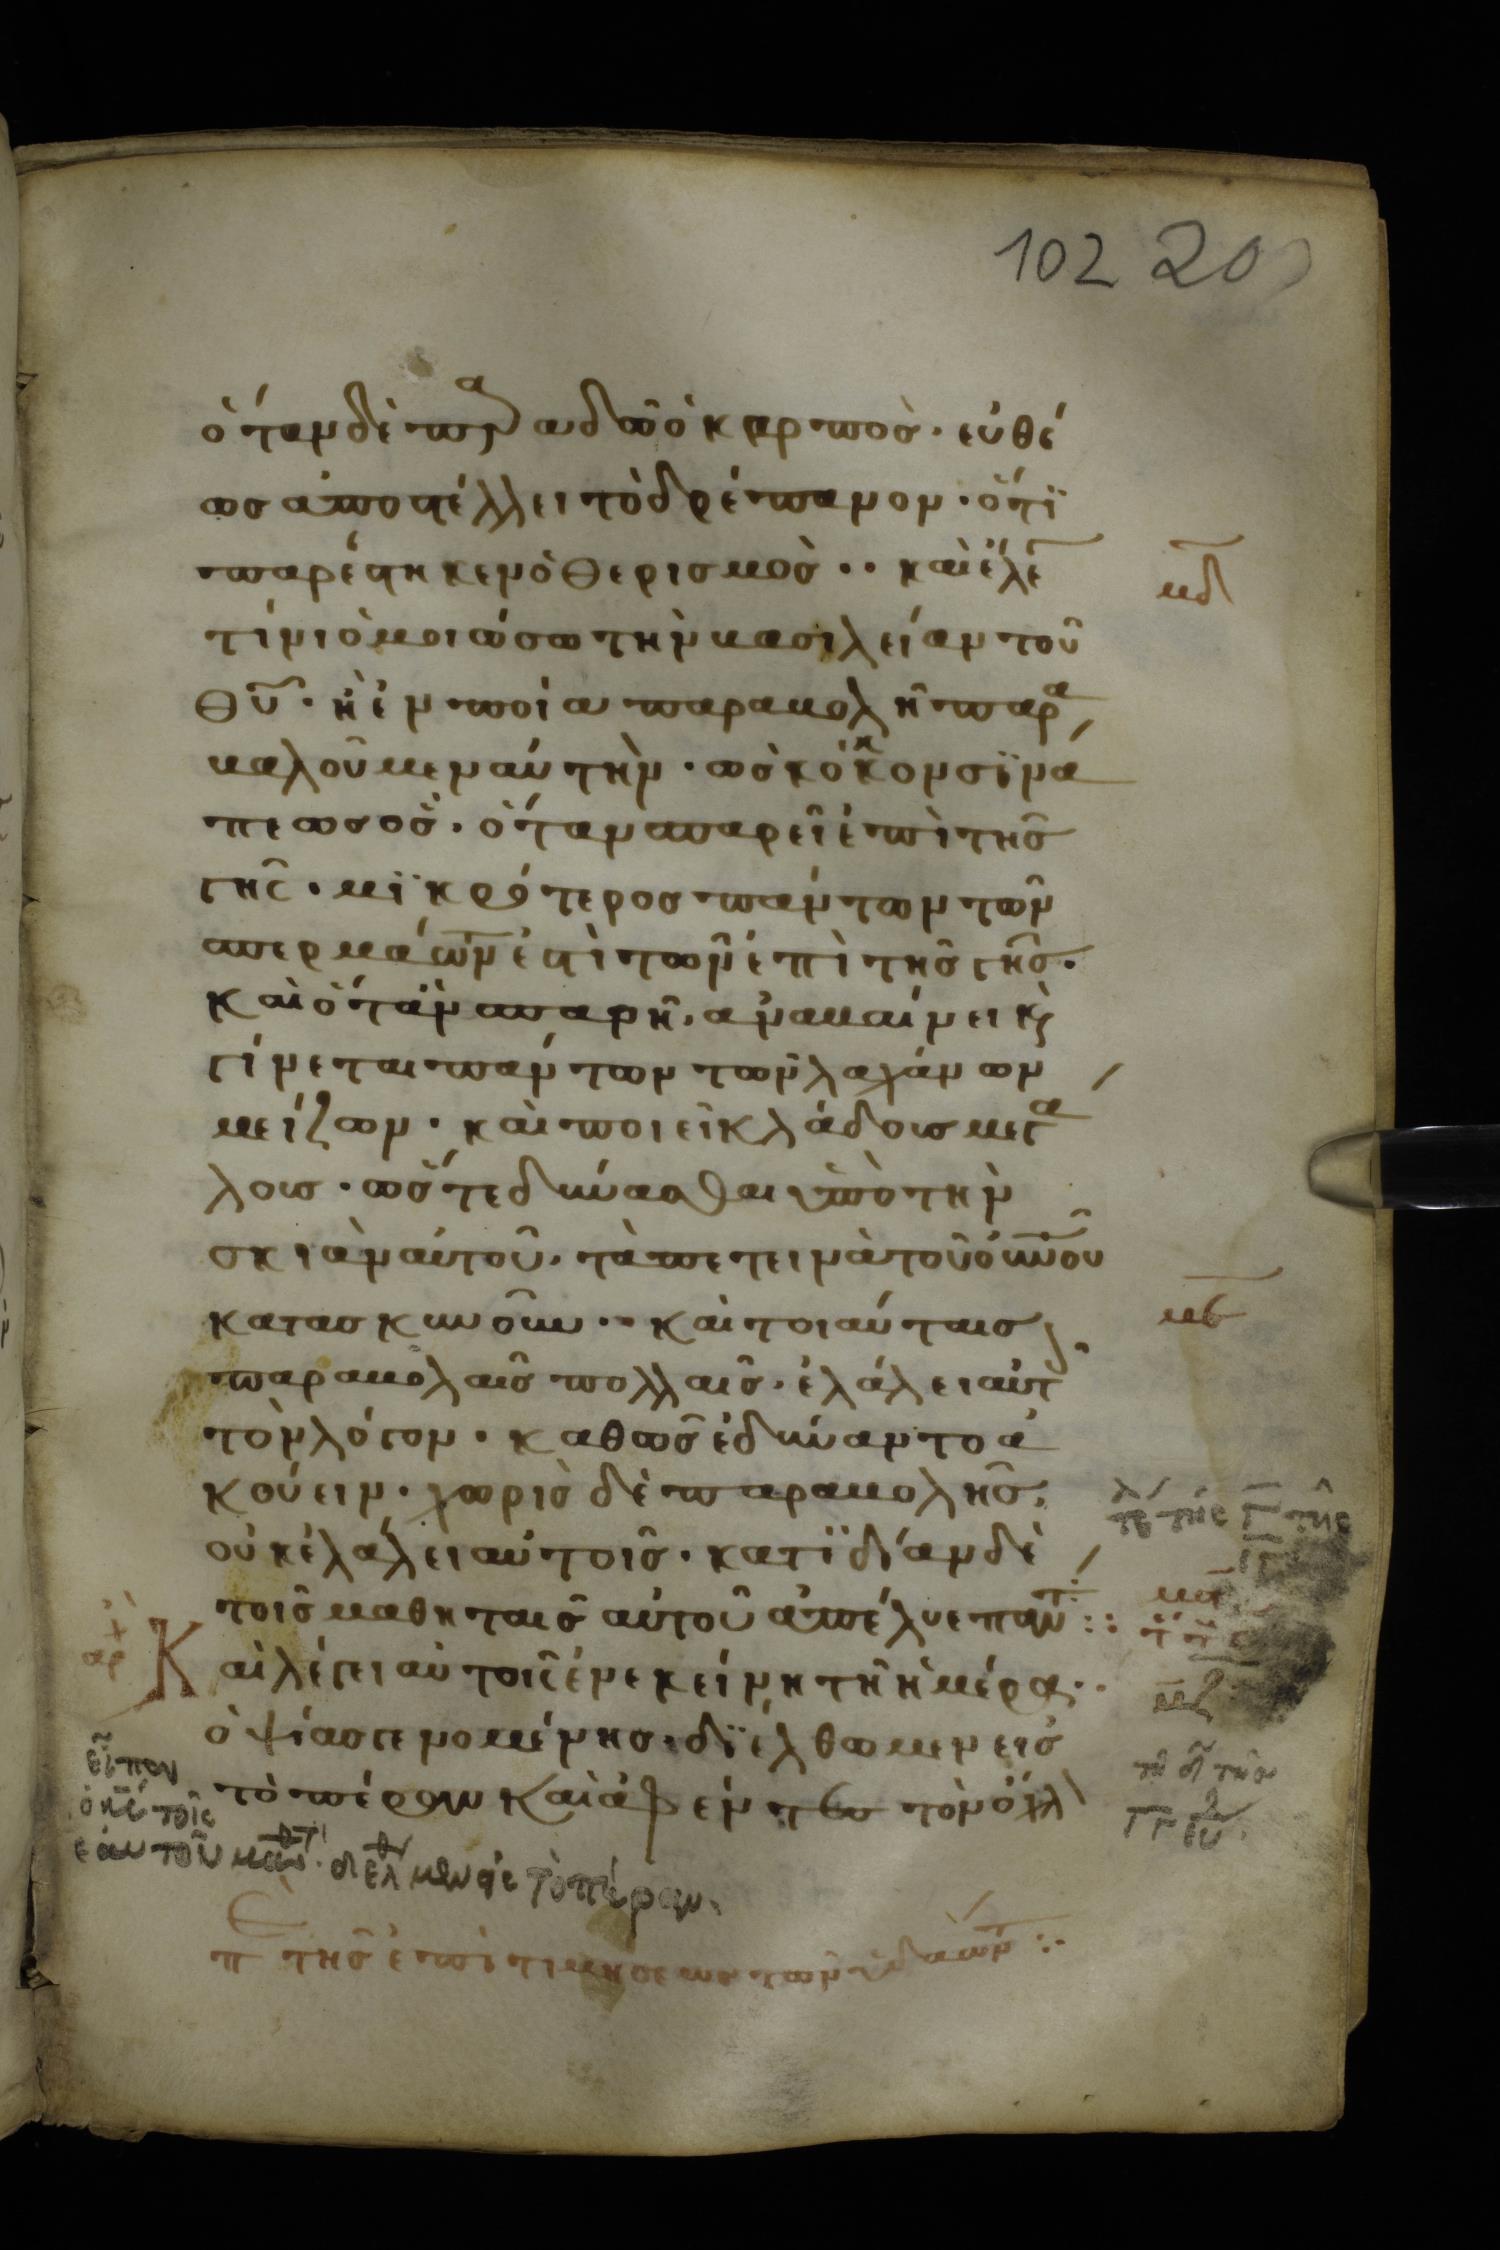 102 20
ὁ ταν δὲ παραδῶ ὁ καρπὸσ · εὐθέ
ωσ ἀποστέλλει τὸ δρέπανον · ὅτϊ
παρέστηκεν ὁ θερισμὸσ ·· καὶ ἔλε
μδ
τίνι ὁμοιώσω τὴν βασιλείαν τοῦ
θῦ · ἢ ἐν ποία παραβολῆ παρα
βαλοῦμεν αὐτήν · ὡσ κόκκον σϊνά
πεωσ ὃσ · ὅταν σπαρεῖ ἐπὶ τῆσ
γῆσ · μϊκρότεροσ πάντων τῶν
σπερμάτων ἐστὶ τῶν ἐπὶ τῆσ γῆσ ·
καὶ ὅτἂν σπαρῆ, ἀναβαίνει κὶ
γίνεται πάντων τῶν λαχάνων
μείζων · καὶ ποιεῖ κλάδουσ μεγα
λουσ · ὥστε δύνασθαι ὑπὸ τὴν
σκιὰν αὐτοῦ · τὰ πετεινὰ τοῦ οὐνοῦ
κατασκηνοῦν ·· καὶ τοιαύταισ
με
παραβολαῖσ πολλαῖσ · ἐλάλει αὐτ
τὸν λόγον · καθὼσ ἐδύναντο ἀ
κούειν · χωρὶσ δὲ παραβολῆσ,
οὐκ ἐλάλει αὐτοῖσ · κατϊδίαν δὲ
τοῖσ μαθηταῖσ αὐτοῦ ἀπέλυε παντ :·
ἀρχ
Καὶ λέγει αὐτοῖσ ἐν ἐκείνη τῆ ἡμέρα ··
ὀψίασ γενομένησ · δϊέλθωμεν εἰσ
τὸ πέραν καὶ ἀφέντεσ τὸν ὄχλ
εἶπεν
ὁ κσ τοῖσ
ἑαυτοῦ μαθτ · διελθωμεν εἰσ τὸ πέραν.
π τῆσ ἐπιτιμήσεωσ τῶν ὑδάτων :·